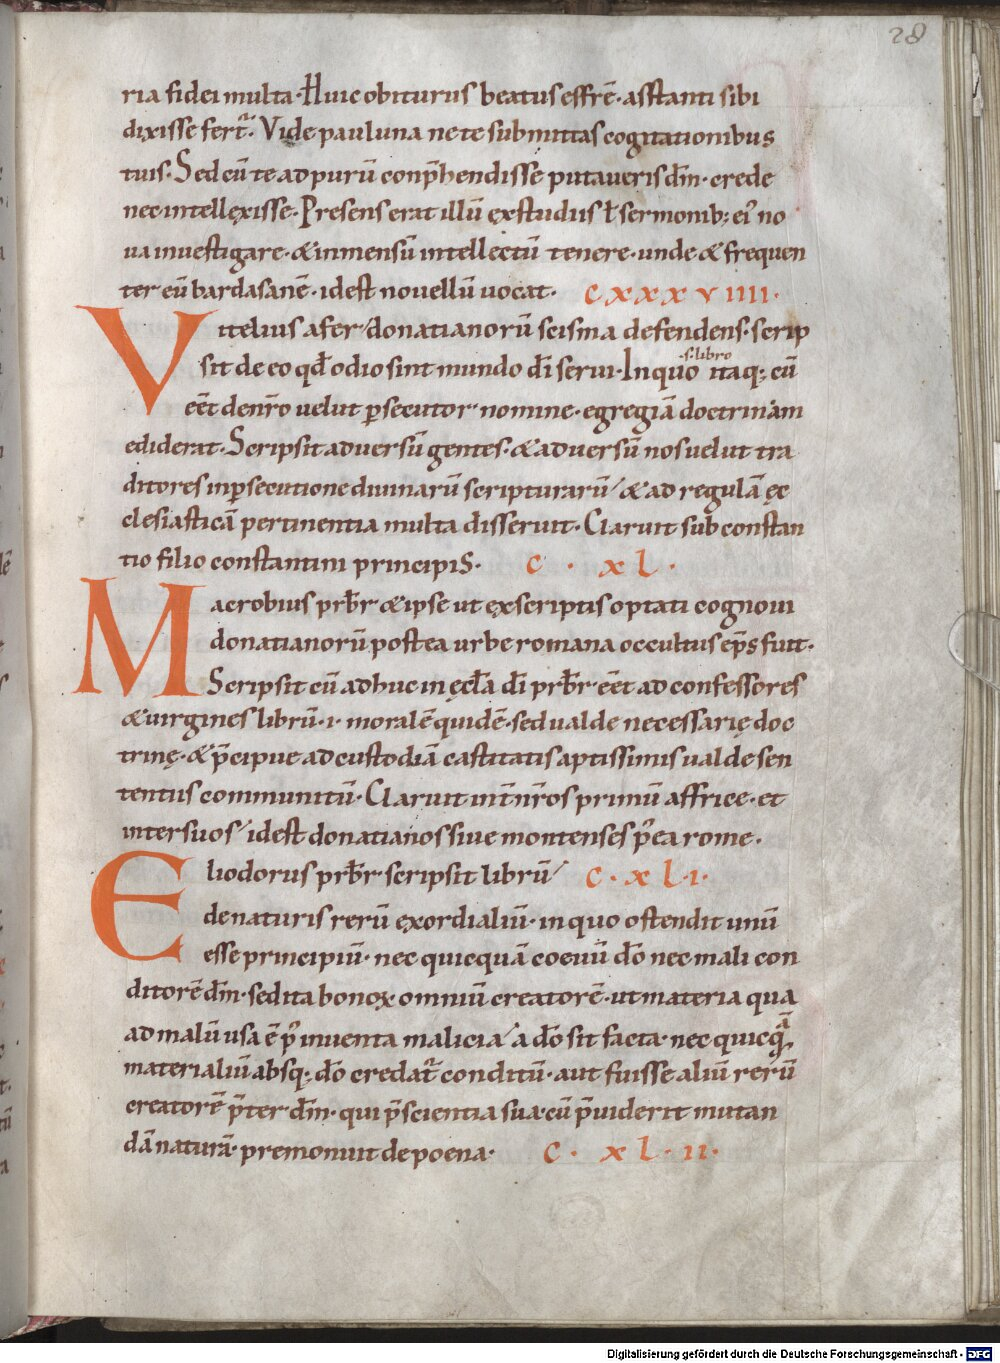 28
ria fidei multa· Huic obiturus beatus effrē· astanti sibi
dixisse fert᷑· Vide pauluna ne te submittas cogitationibus
tuis· Sed cū te ad purū conp̄hendisse putaveris dm̄· crede
nec intellexisse· Presens erat illū ex studiis ł sermonib; ei᷑ no
va investigare· & inmensū intellectū tenere· unde & frequen
ter eū bardasanē· idest novellū vocat· CXXXVIIII·
Vitelius afer/ donatianorū scisma defendens· scrip
·s· libro
sit de eo qđ odio sint mundo dī servi· In quo itaq; cū
eēt de nr̄o velut p̱secutor nomine· egregiā doctrinam
ediderat· Scripsit adversū gentes· & adversū nos velut tra
ditores in p̱secutione divinarū scripturarū/ & ad regulā ęc
clesiasticā pertinentia multa disseruit· Claruit sub constan
tio filio constantini principis· C · XL ·
Macrobius prb̄r & ipse ut ex scriptis optati cognovi
donatianorū postea urbe romana occultus ep̄s fuit·
Scripsit cū adhuc in ęcl̄a dī prb̄r eēt ad confessores
& virgines librū· i· moralē quidē· sed valde necessarię doc
trinę· & p̄cipue ad custodiā castitatis aptissimis valde sen
tentiis communitū· Claruit int̄ nr̄os primū affrice· et
inter suos/ idest donatianos sive montenses p᷒ ea rome·
Eliodorus prb̄r scripsit librū/ C·XL·I·
de naturis rerū exordialiū· in quo ostendit unū
esse principiū· nec quicquā coevū dō nec mali con
ditorē dm̄· sed ita bonoꝝ omniū creatorē· ut materia qua
ad malū usa ē p᷒ inventa malicia/ a dō sit facta· nec quicquā
materialiū absq; dō credat᷑ conditū· aut fuisse aliū rerū
creatorē p̄ter dm̄· qui p̄scientia sua· cū p̄viderit mutan
dā naturā· premonuit de poena· C· XL·II·
Digitalisierung gefördert durch die Deutsche Forschungsgemeinschaft - DFG